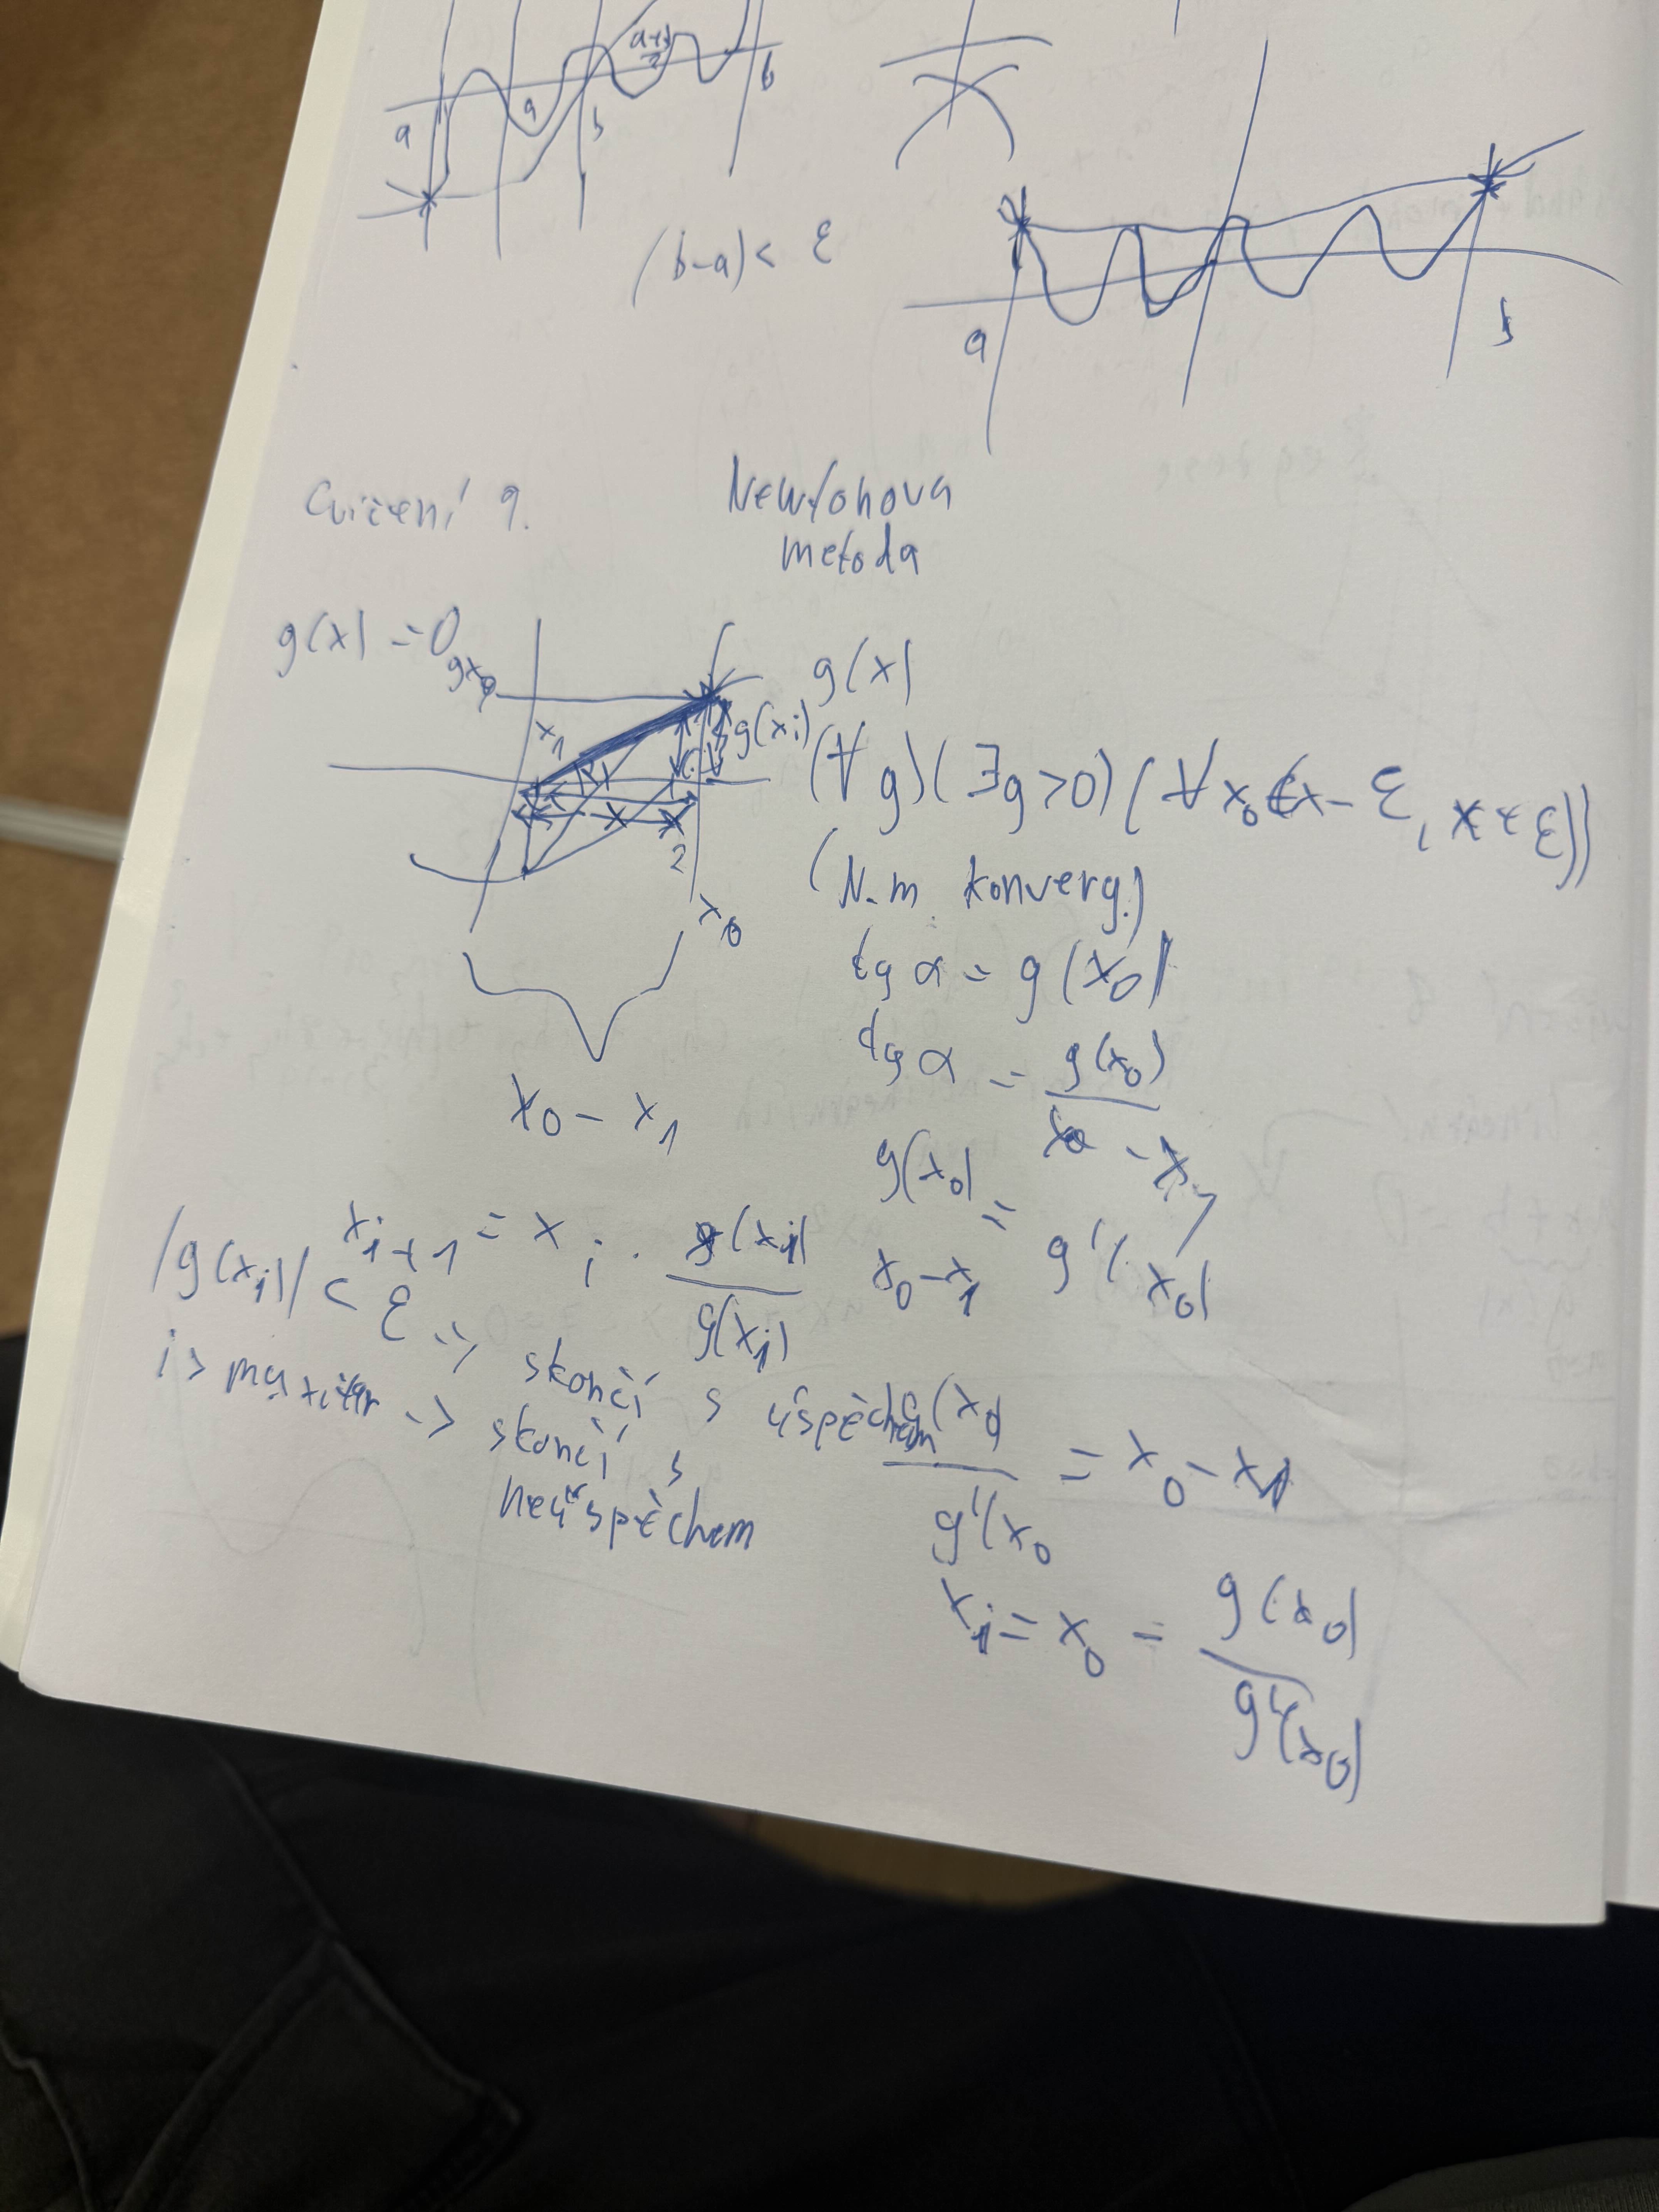 a
a
b
a+b
2
b
(b-a) < ε
a
b
Cvičení 9.
Newtonova
metoda
g(x) = 0
gx0
x1
g(x)
g(xi)
(∀ g)(∃g>0)(∀x0∈(x-ε, x+ε))
(N.m. konverg.)
x
2
x0
x0 - x1
tg α = g(x0)
tg α = g(x0)
x0 - x1
g(x0)
x0-x1
= g'(x0)
xi+1 = xi . g(xi)
g(xi)
|g(xi)| < ε -> skončí s úspěchem
i > maxiter -> skončí s
neúspěchem
g(x0)
g'(x0
= x0 - x1
x1 = x0 = g(x0)
g'(x0)